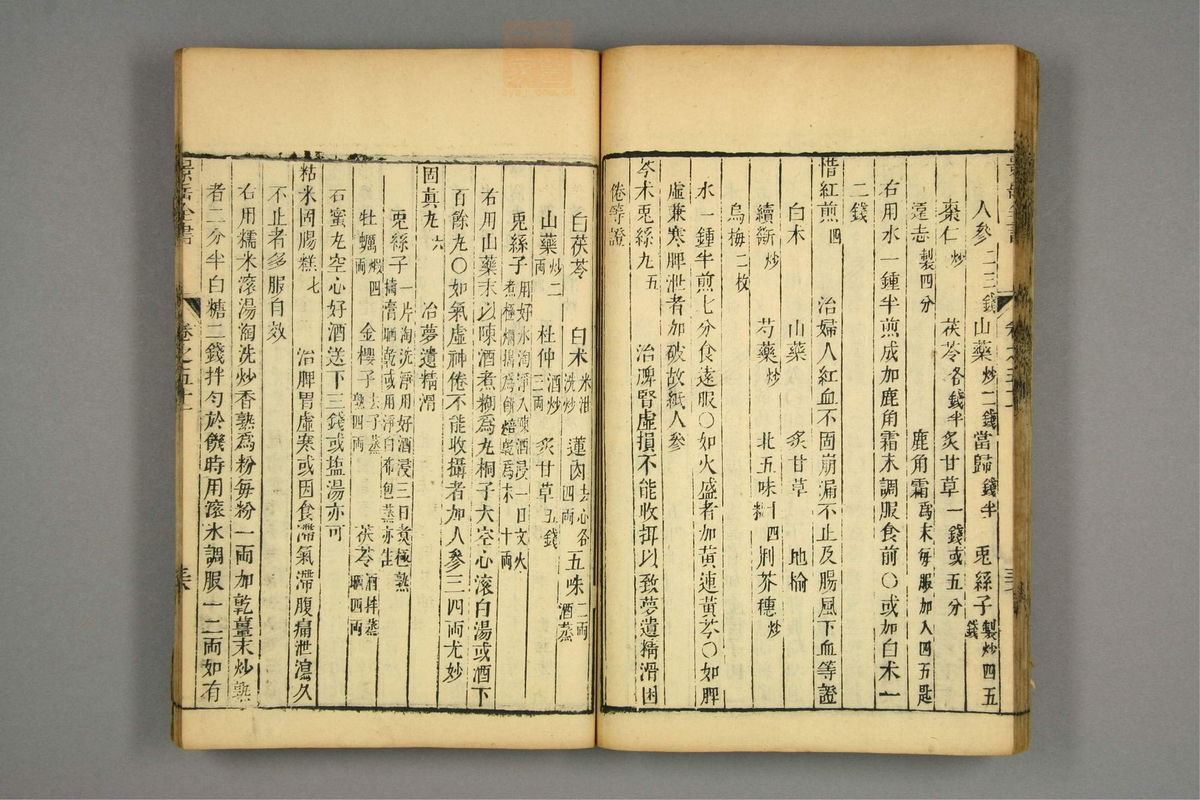 人參二三錢 山藥炒二錢 當歸錢半 兎絲子製炒四五錢
棗仁炒 茯苓各錢半 炙甘草一錢或五分
遠志製四分 鹿角霜爲末每服加入四五匙
右用水一鍾半煎成加鹿角霜末調服食前○或加白术一
二錢
惜紅煎四 治婦人紅血不固崩漏不止及腸風下血等證
白术 山藥 炙甘草 地榆
續斷炒 芍藥炒 北五味十四粒 荆芥穗炒
烏梅二枚
水一鍾半煎七分食遠服○如火盛者加黄連黄芩○如脾
虛兼寒脾泄者加破故紙人參
苓术兎絲丸五 治脾腎虛損不能收攝以致夢遺精滑困
倦等證
白茯苓 白术米泔洗炒 蓮肉去心各四兩 五味二兩酒蒸
山藥炒二兩 杜仲酒炒三兩 炙甘草五錢
兎絲子用好水淘淨入陳酒浸一日文火煮極爛搗爲餅焙乾爲末十兩
右用山藥末以陳酒煮糊爲丸桐子大空心滚白湯或酒下
百餘丸○如氣虛神倦不能收攝者加人參三四兩尤妙
固真丸六 治夢遺精滑
兎絲子一斤淘洗淨用好酒浸三日煮極熟搗膏晒乾或用淨白布包蒸亦佳
牡蠣煅四兩 金櫻子去子蒸熟四兩 茯苓酒拌蒸晒四兩
石蜜丸空心好酒送下三錢或塩湯亦可
粘米固腸糕七 治脾胃虛寒或因食滯氣滯腹痛泄瀉久
不止者多服自效
右用糯米滚湯淘洗炒香熟爲粉每粉一兩加乾薑末炒熟
者二分半白糖二錢拌匀於饑時用滚水調服一二兩如有
景岳全書
卷之五十一